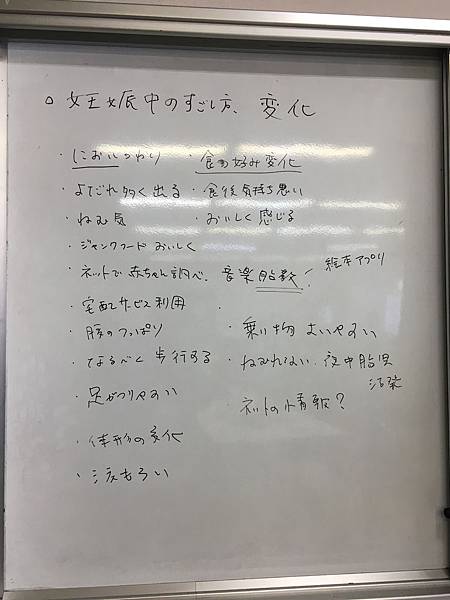 ○ 妊娠中のすごし方、変化
・においつわり ・食の好み変化
・よだれ多く出る ・食後気持ち悪い
・ねむ気 ・おいしく感じる
・ジャンクフードおいしく
・ネットで赤ちゃん調べ、音楽胎教! 絵本アプリ
・宅配サービス利用
・腰のつっぱり ・乗り物よいやすい
・なるべく歩行する ・ねむれない、夜中胎児活発
・足がつりやすい ・ネットの情報?
・体形の変化
・涙もろい